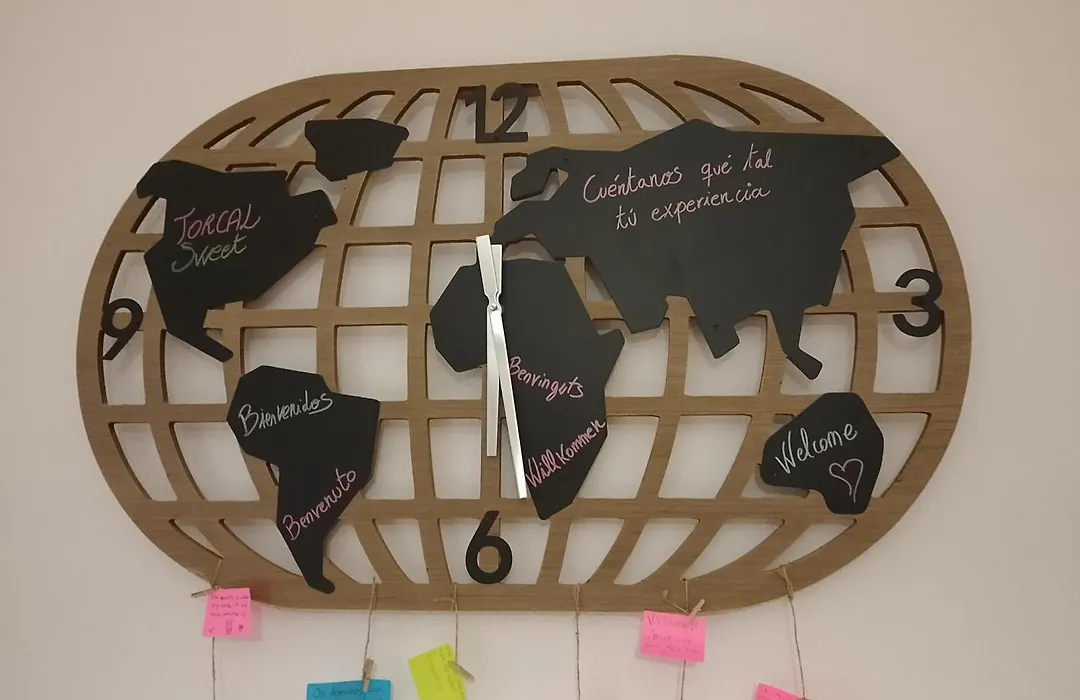 12
TORCAL
Sweet
Cuéntanos qué tal
tú experiencia
9
3
Benvinguts
Bienvenidos
Willkommen
Welcome
Benvenuto
6